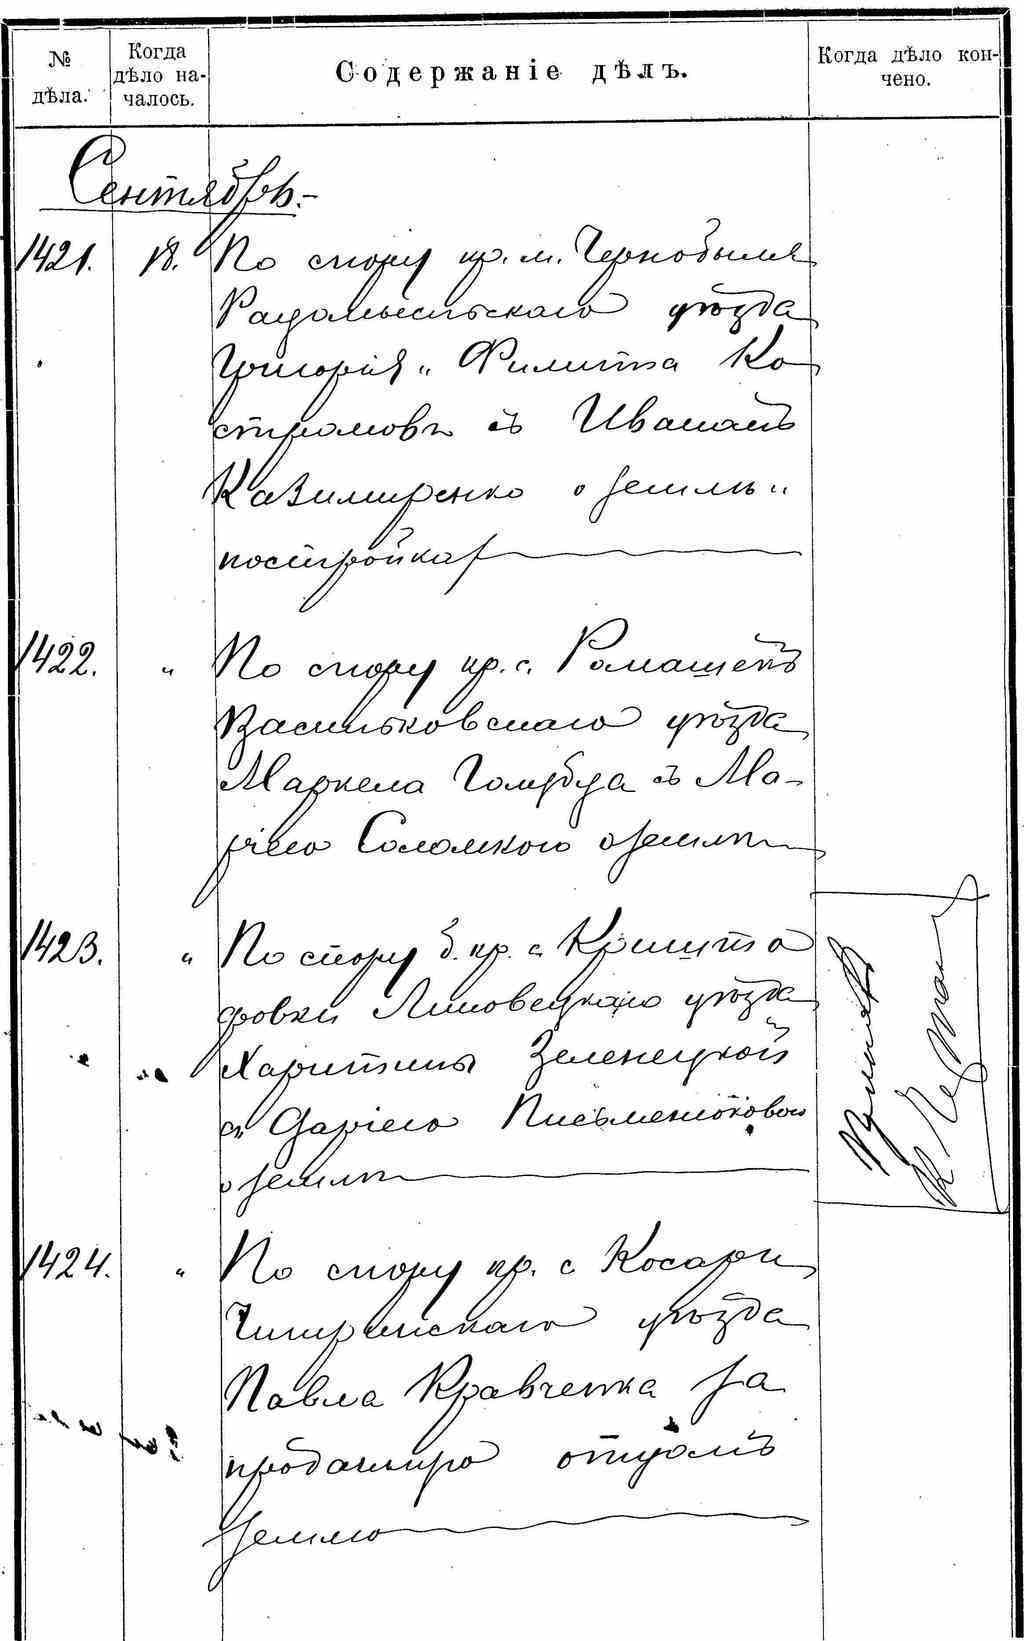 № дѣла.
Когда дѣло началось.
Содержаніе дѣлъ.
Когда дѣло кончено.
Сентябрь.-
1421. 18. По спору кр. м. Чернобыля
Радомысльскаго уѣзда
Григорія и Филиппа Ко
стромовъ съ Иваномъ
Казимиренко о землѣ и
постройках
1422. " По спору кр. с. Ромашекъ
Васильковскаго уѣзда
Маркела Голуба съ Ма-
ріею Соломкою о землѣ
1423. " По спору б. кр. с. Кришто
фовки Липовецкаго уѣзда
Харитины Зеленецкой
съ Даріею Письменюковою
о землѣ
1424. " По спору кр. с Косари
Чигиринскаго уѣзда
Павла Кравченка за
проданную отцомъ
землю